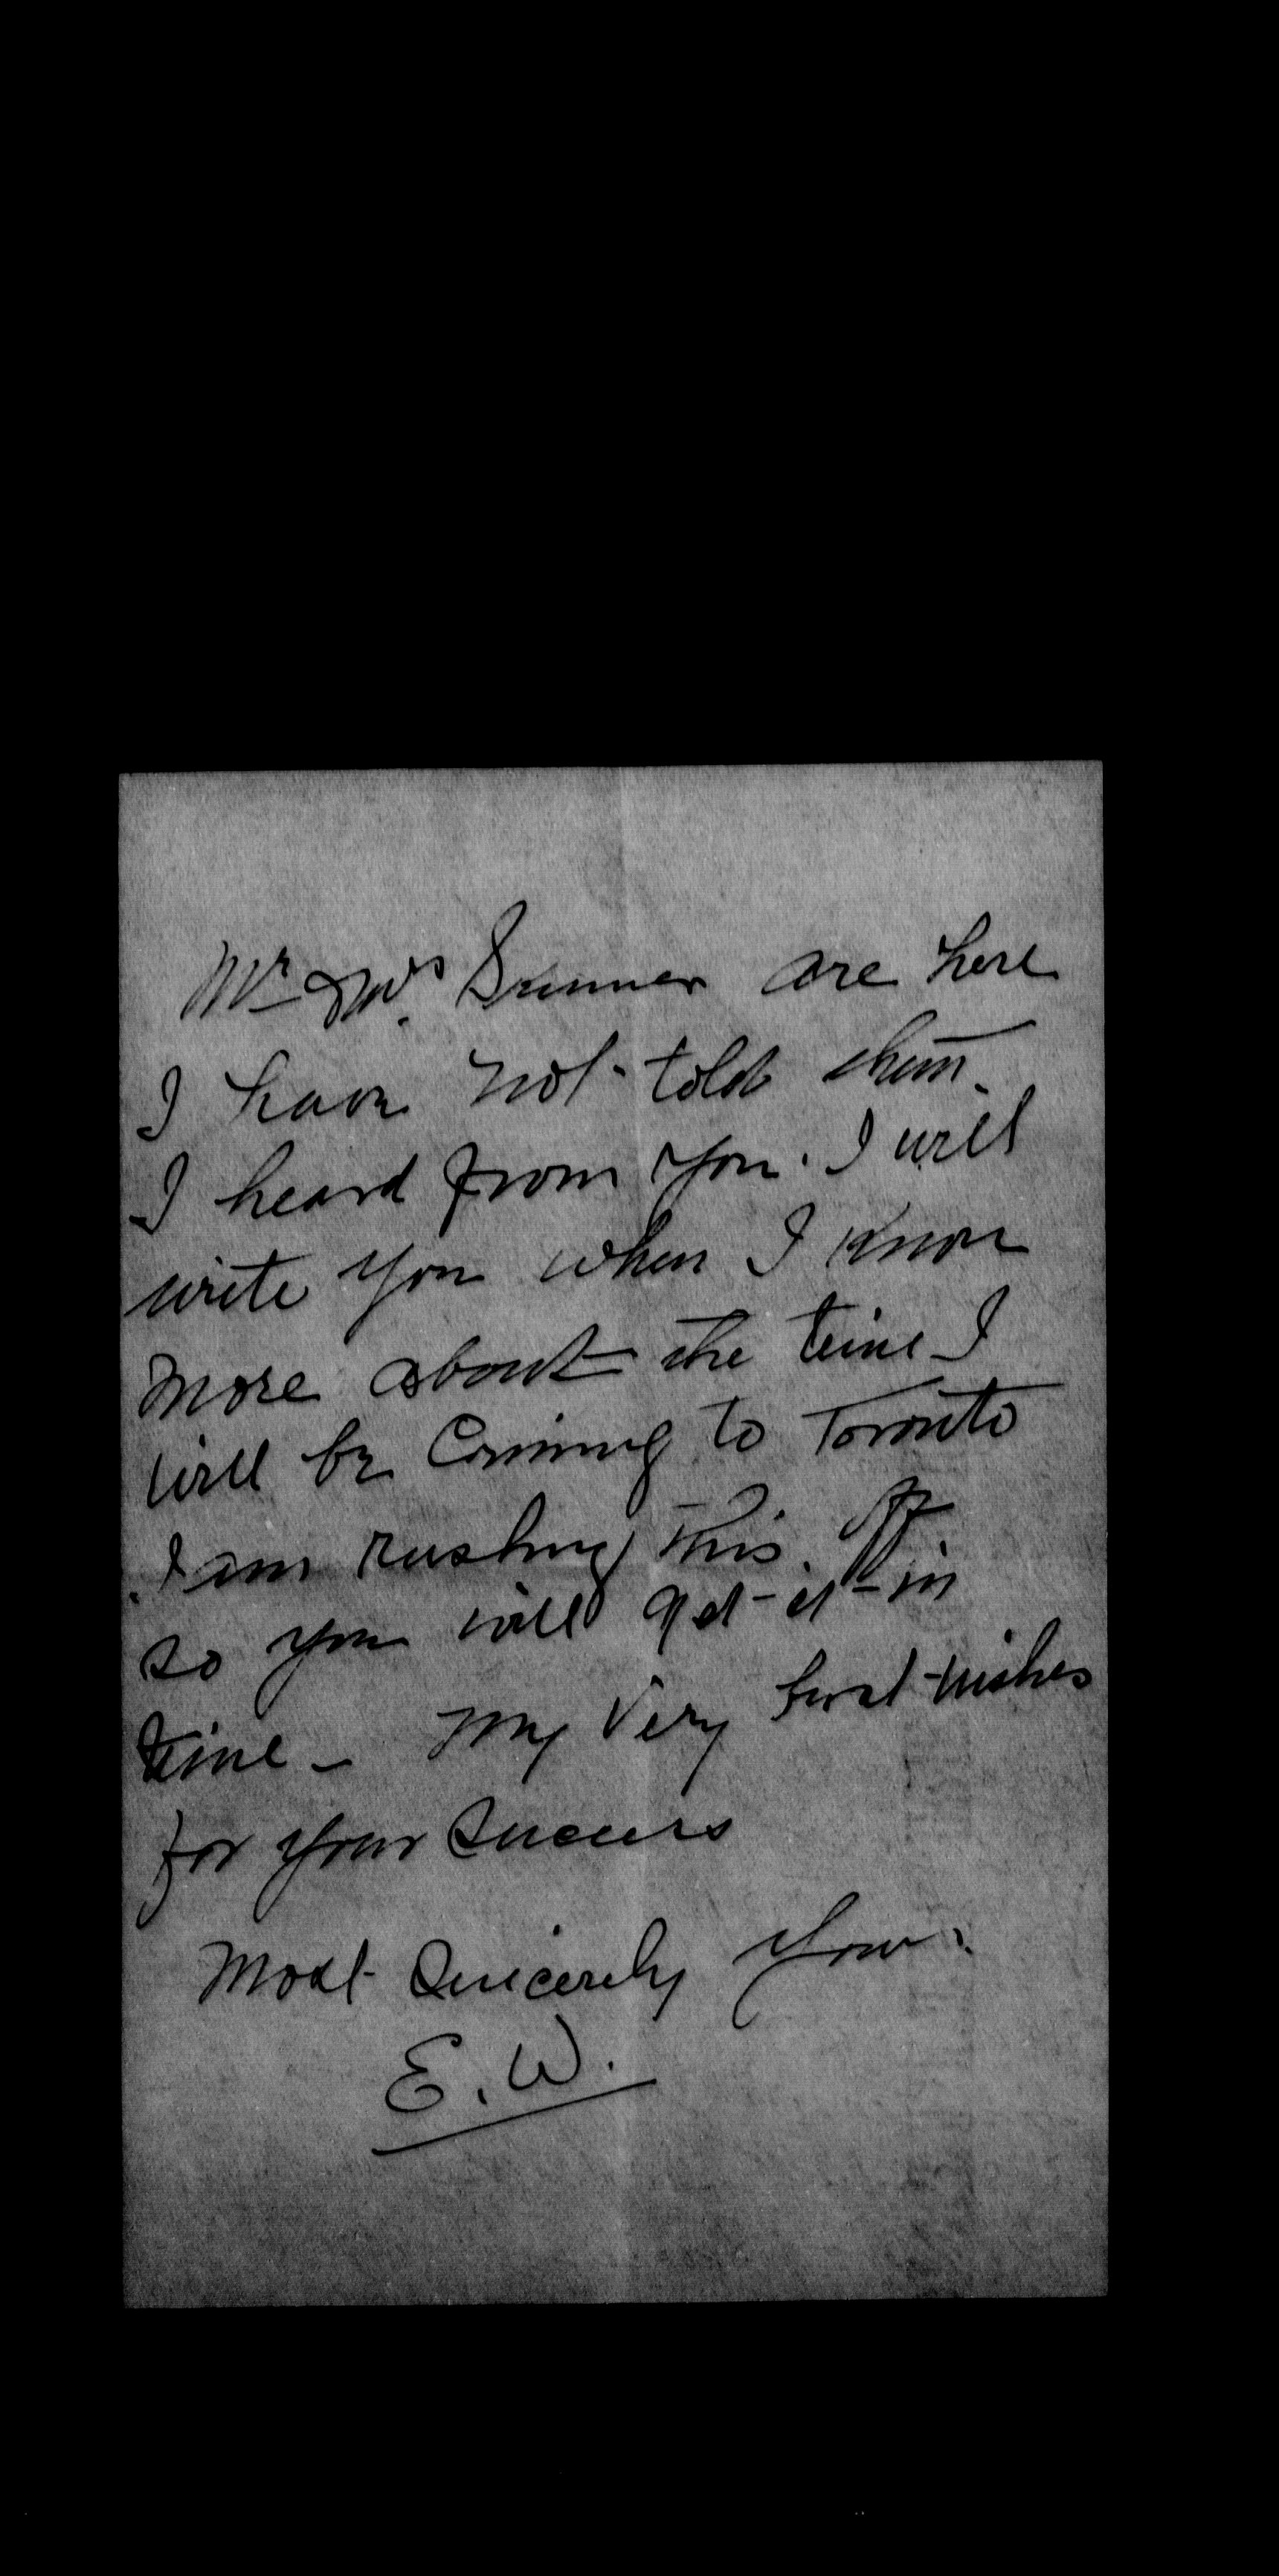 Mr & Mrs. are here
I have not told them
I heard from you. I will
write you when I know
more about the time I
will be Coming to Toronto
I am rushing this off
so you will get it in
time - My Very best wishes
for your Success
Most Sincerely Yours
E. W.